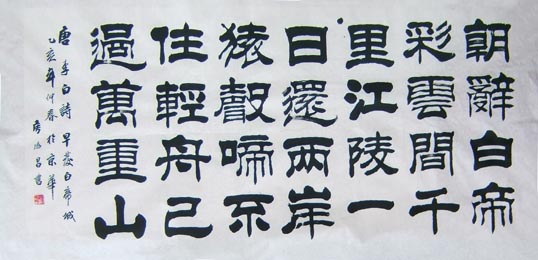 朝辭白帝
彩雲間千
里江陵一
日還兩岸
猿聲啼不
住輕舟已
過萬重山
唐李白詩早發白帝城
乙亥年仲春於京華
昌書